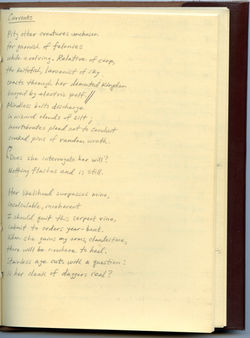 Currents
Pity other creatures
for garnish of felonies
while evolving. Relative of carp,
the knifefish, larcenist of sky
coasts through her demented kingdom
buoyed by electric pelf.
Mindless bolts discharge
in wizard clouds of silt;
invertebrates plead not to conduct
snaked pins of random wrath.
Does she interrogate her will?
Nothing flashes and is still.
Her likelihood surpasses mine,
incalculable, incoherent
I should quit this serpent vine,
submit to orders year-bent.
When she gains my arms, clandestine,
there will be nowhere to heal.
Starless age cuts with a question:
is her cloak of daggers real?